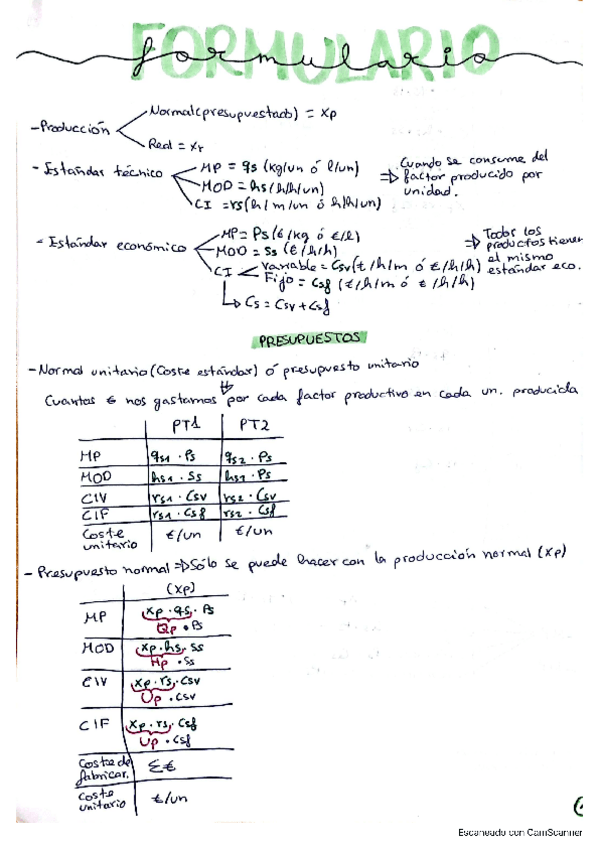 FORMULARIO
formulario
-Producción
Normal(presupuestado) = Xp
Real = Xr
- Estándar técnico
MP = qs (kg/un ó l/un)
MOD = hs (h/h/un)
CI = rs (h/m/un ó h/h/un)
=> Cuando se consume del
factor producido por
unidad.
- Estándar económico
MP = Ps (€/kg ó €/l)
MOD = Ss (€/h/h)
CI
Variable = Csv (€/h/m ó €/h/h)
Fijo = Csf (€/h/m ó €/h/h)
Cs = Csv + Csf
=> Todos los
productos tienen
el mismo
estándar eco.
PRESUPUESTOS
- Normal unitario (Coste estándar) ó presupuesto unitario
Cuantos € nos gastamos por cada factor productivo en cada un. producida
PT1 PT2
MP qs1 · Ps qs2 · Ps
MOD hs1 · Ss hs2 · Ps
CIV rs1 · Csv rs2 · Csv
CIF rs1 · Csf rs2 · Csf
Coste
unitario €/un €/un
- Presupuesto normal => Sólo se puede hacer con la producción normal (Xp)
(Xp)
MP Xp · qs · Ps
Qp · Ps
MOD Xp · hs · Ss
Hp · Ss
CIV Xp · rs · Csv
Up · Csv
CIF Xp · rs · Csf
Up · Csf
Coste de
fabricar. Σ€
Coste
unitario €/un
Escaneado con CamScanner